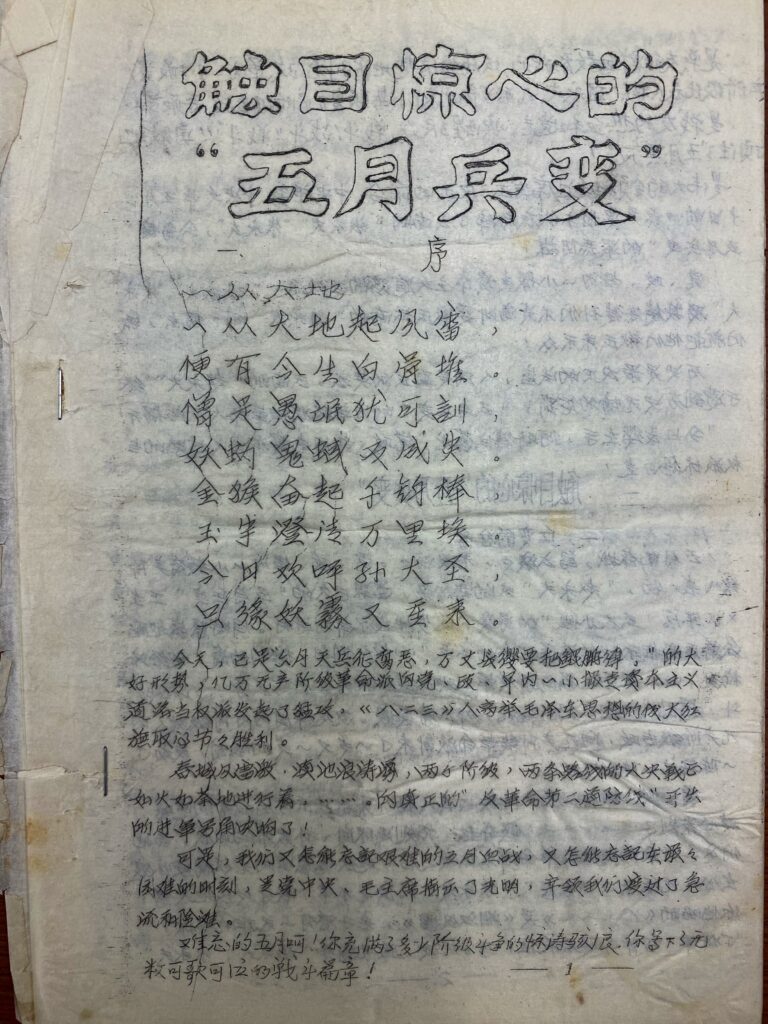 触目惊心的
“五月兵变”
一、序
一从大地
一从大地起风雷,
便有今生白骨堆。
僧是愚氓犹可訓,
妖為鬼蜮必成灾。
金猴奋起千钧棒,
玉宇澄清万里埃。
今日欢呼孙大圣,
只缘妖霧又重来。
今天,已是“六月天兵征腐恶,万丈长缨要把鲲鹏缚。”的大
好形势,亿万无产阶级革命派向党、政、军内一小撮走资本主义
道路当权派发起了猛攻,《八·二三》人高举毛泽东思想的伟大红
旗取得节々胜利。
春城风雷激,滇池浪涛涌,两个阶级,两条路线的大决战正
如火如荼地进行着,……的真正的“反革命第二道防线”开火
的进军号角吹响了!
可是,我们又怎能忘记艰难的五月血战,又怎能忘记在最々
困难的时刻,是党中央、毛主席指示了光明,率领我们渡过了急
流和险滩。
难忘的五月呵!你充满了多少阶级斗争的惊涛骇浪,你写下了无
数可歌可泣的战斗篇章!
1